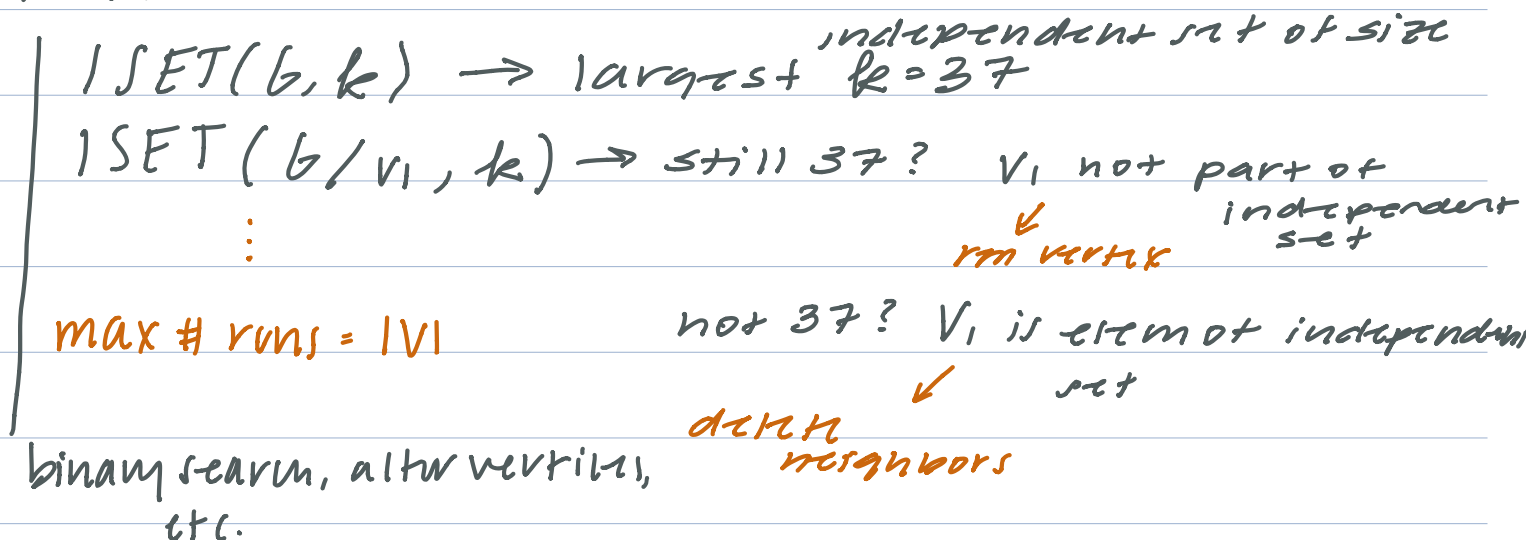 independent set of size
ISET(G, k) → largest k = 37
ISET(G/v₁, k) → still 37? V₁ not part of
independent
set
⋮
rm vertex
max # runs = |V|
not 37? V₁ is elem of independent
set
delete
neighbors
binary search, alter vertices,
etc.